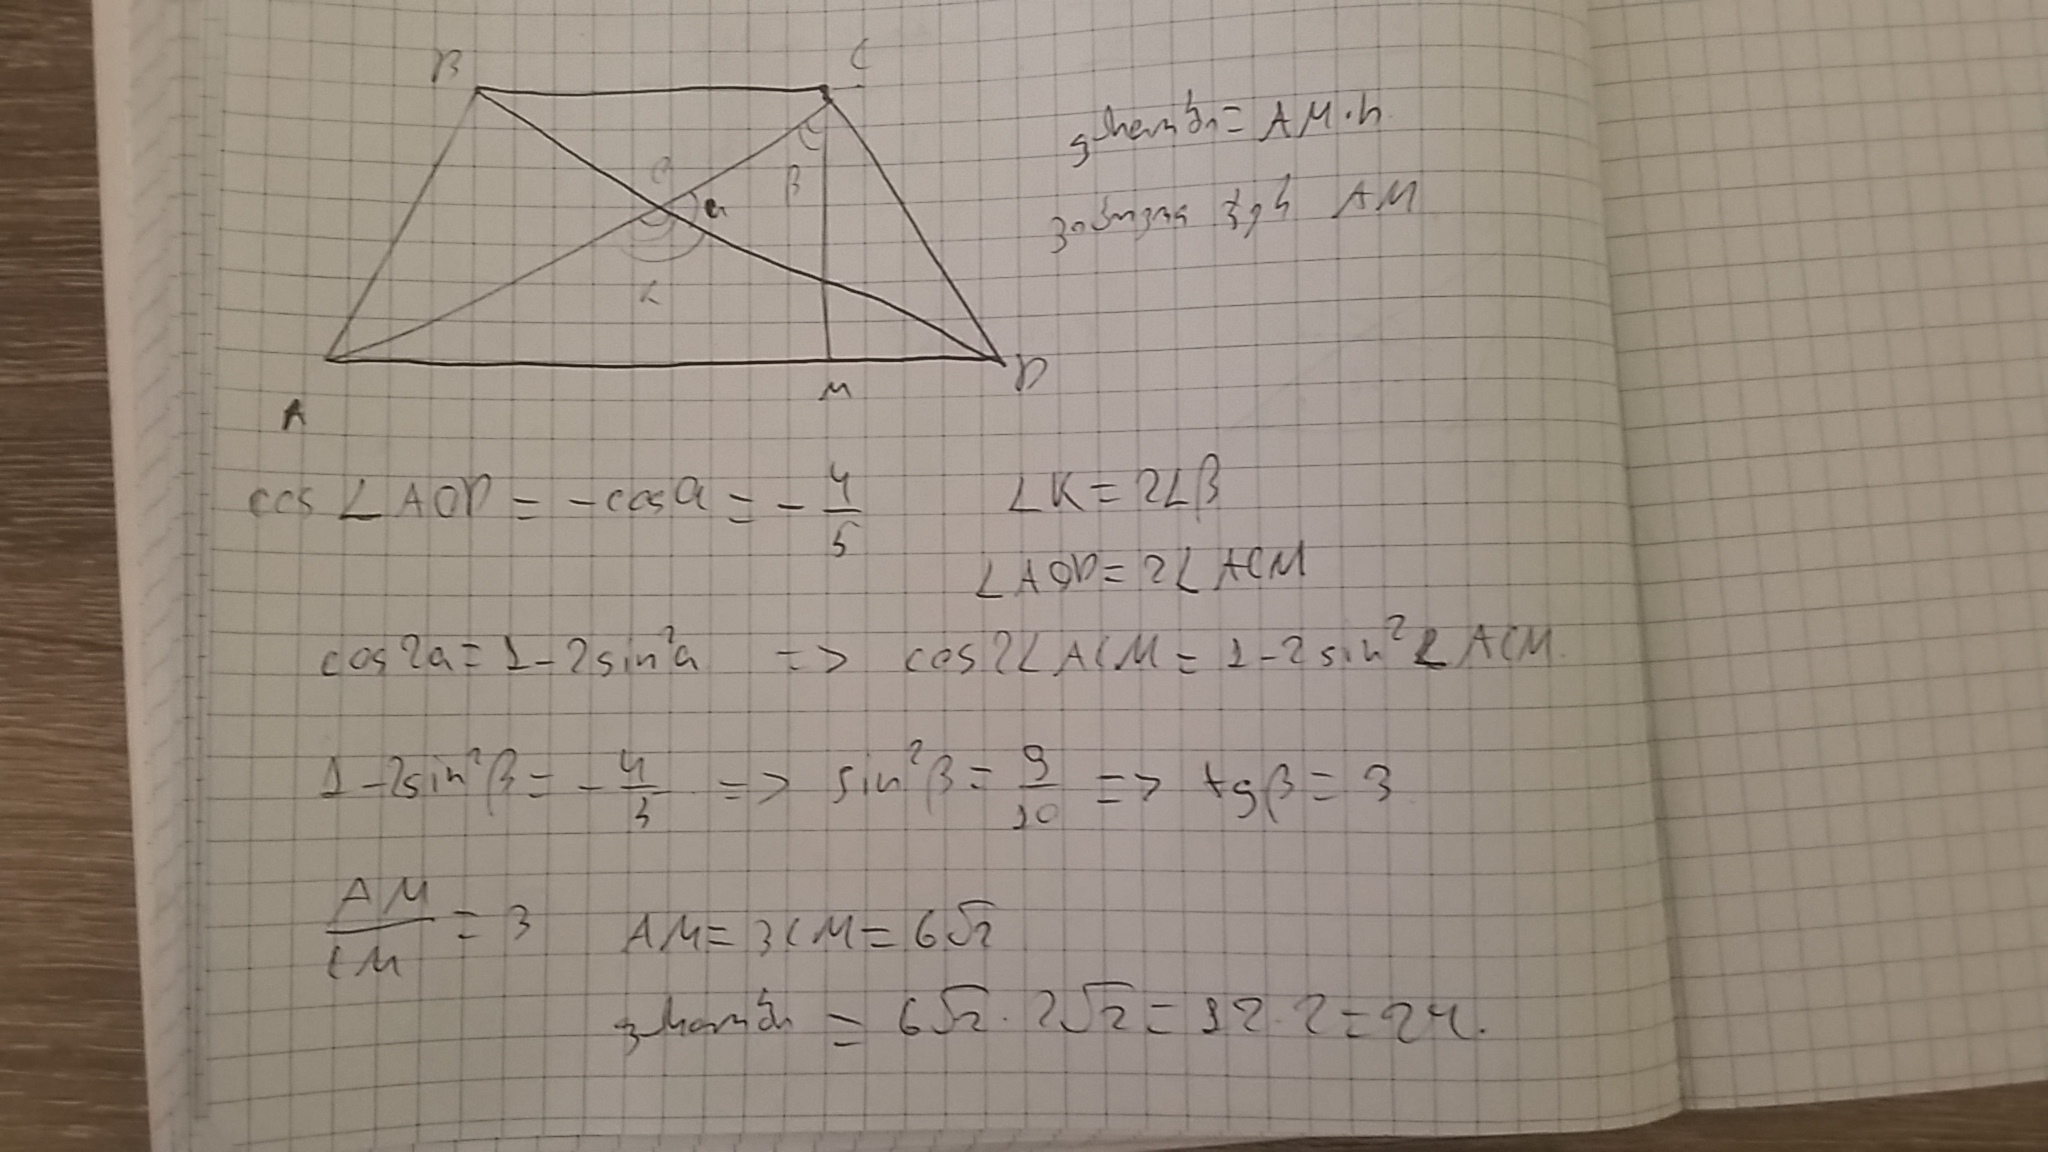 B C
β
a
K
A M D
ფართობი = AM·h
ვიპოვოთ AM
cos∠AOD = -cosa = -4/5 ∠K = 2∠β
∠AOD = 2∠ACM
cos2a = 1-2sin²a => cos2∠ACM = 1-2sin²∠ACM.
1-2sin²β = -4/5 => sin²β = 9/10 => tgβ = 3
AM/CM = 3 AM = 3CM = 6√2
ფართობი = 6√2·2√2 = 12·2 = 24.